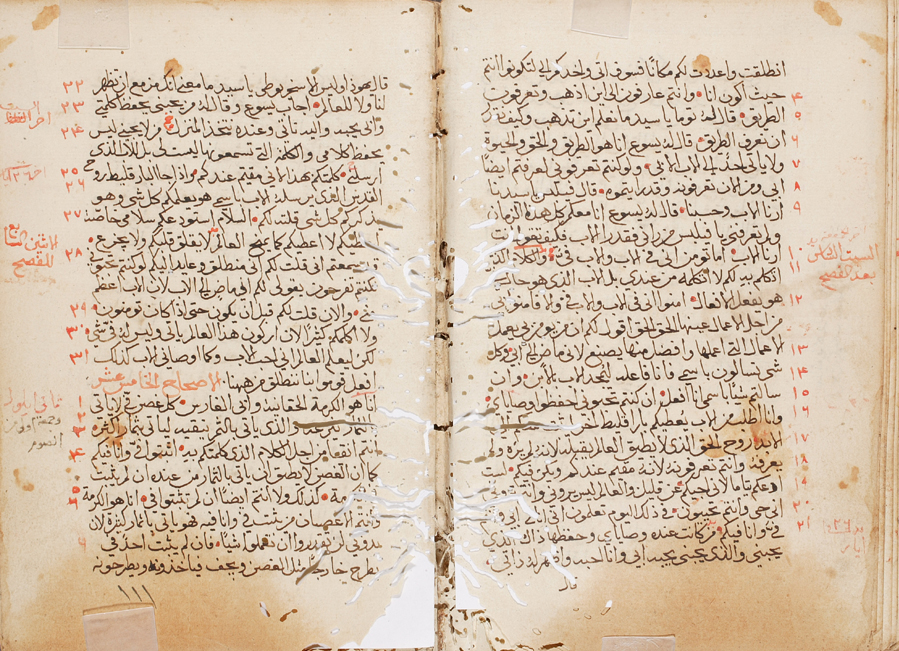 انطلقت واعددت لكم مكانًا فسوف اتي واخدكم الي لتكونوا انتم
حيث اكون انا وانتم عارفون الى اين اذهب وتعرفون
الطريق قال له توما يا سيد ما نعلم اين تذهب وكيف نقدر
ان نعرف الطريق قال له يسوع انا هو الطريق والحق والحيوة
ولا ياتي احد الى الاب الا بي ولو كنتم تعرفوني لعرفتم ايضًا
ابي ومن الان تعرفونه وقد رايتموه قال فيلبس يا سيدنا
أرنا الاب وحسبنا قال له يسوع انا معكم كل هذه الزمان
ولم تعرفني يا فيلبس من راني فقد راى الاب فكيف تقول انت
ارنا الاب اما تؤمن اني في الاب والاب في والكلام الذي
اتكلم به لكم لا اتكلمه من عندي بل الاب الذي هو حال في
هو يفعل الافعال امنوا اني في الاب والاب في والا فامنوا بي
من اجل الاعمال عينها الحق الحق اقول لكم ان من يومن بي يعمل
الاعمال التي اعملها وافضل منها يصنع لاني ماض الى ابي وكل
شي تسالون باسمي فانا فاعله ليتمجد الاب بالابن وان
سالتم شيًا باسمي انا افعل ان كنتم تحبوني احفظوا وصاياي
وانا اطلب من الاب يعطيكم بارقليط اخر
الابد روح الحق الذي لا يطيق العالم يقبله لانه لم يره ولم
يعرفه وانتم تعرفونه لانه مقيم عندكم ويكون فيكم لست
ادعكم يتاما لاني اجيكم عن قليل والعالم ليس يروني وانتم تروني
اني حي وانتم تحيون في ذلك اليوم تعلمون اني انا في ابي وانتم
في وانا فيكم من كانت عنده وصاياي وحفظها ذاك الذي
يحبني والذي يحبني يحبه ابي وانا احبه واظهر له ذاتي
قال
٤
٥
٦
٧
٨
٩
١٠
١١
١٢
١٣
١٤
١٥
١٦
١٧
١٨
٢٠
٢١
السبت
بعد الفصح
قال يهوذا وليس السخريوطي يا سيد ما معنى انك مزمع ان تظهر
لنا ولا للعالم اجاب يسوع وقال له من يحبني يحفظ كلمتي
وابي يحبه واليه ناتي وعنده نتخذ المنزل من لا يحبني ليس
يحفظ كلامي والكلمة التي تسمعونها ليست لي بل للاب الذي
ارسلني كلمتكم بهذا لاني مقيم عندكم واذا جا البارقليط روح
القدس الذي يرسله الاب باسمي هو يعلمكم كل شي وهو
يذكركم كل شي قلت لكم السلام استودعكم سلامي خاصة
اعطيكم لا اعطيكم كما يمنح العالم لا يقلق قلبكم ولا يجزع
سمعتم اني قلت لكم اني منطلق وعايد اليكم لو كنتم تحبوني
لكنتم تفرحون بقولي لكم اني ماض الى الاب لان الاب اعظم
مني والان قلت لكم قبل ان يكون حتى اذا كان تومنون
ولا اكلمكم كثيرًا لان اركون هذا العالم ياتي وليس له في شي
لكن ليعلم العالم اني احب الاب وكما اوصاني الاب كذلك
افعل قوموا بنا ننطلق من ههنا الاصحاح الخامس عشر
انا هو الكرمة الحقانية وابي الفارس كل غصن في لا ياتي
بثمار ينزعه والذي ياتي بالثمر ينقيه لياتي بثمار كثيرة
انتم انقيا من اجل الكلام الذي كلمتكم به اثبتوا في وانا فيكم
كما ان الغصن لا يطيق ان ياتي بالثمار من عنده ان لم يثبت
كذلك ولا انتم ايضًا ان لم تثبتوا في انا هو الكرمة
وانتم الاغصان من يثبت في وانا فيه هو ياتي بثمار كثيرة لان
بدوني لن تقدروا ان تعملوا شيًا فان لم يثبت احد في
يطرح خارجًا مثل الغصن ويجف فياخذونه ويطرحونه
٢٢
٢٣
٢٤
٢٥
٢٦
٢٧
٢٨
٢٩
٣٠
٣١
١
٢
٣
٤
٥
٦
للفصح